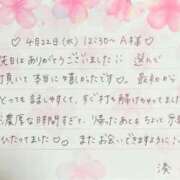 ♡ 4月22日(水) 12:30〜 A様 ♡
先日はありがとうございました!! 選んで
頂いて本当に嬉しかったです。最初から
とっても話しやすくて、すぐ打ち解けちゃってました
濃厚な時間すぎて、帰ったあともちょっと
ひたってました♡ またお会いできますように
湊